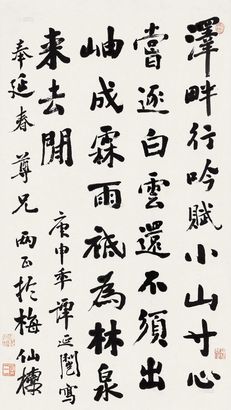 澤畔行吟賦小山寸心
嘗逐白雲還不須出
岫成霖雨祗為林泉
来去閒
庚申年譚延闓寫
奉延春尊兄兩正於梅仙樓